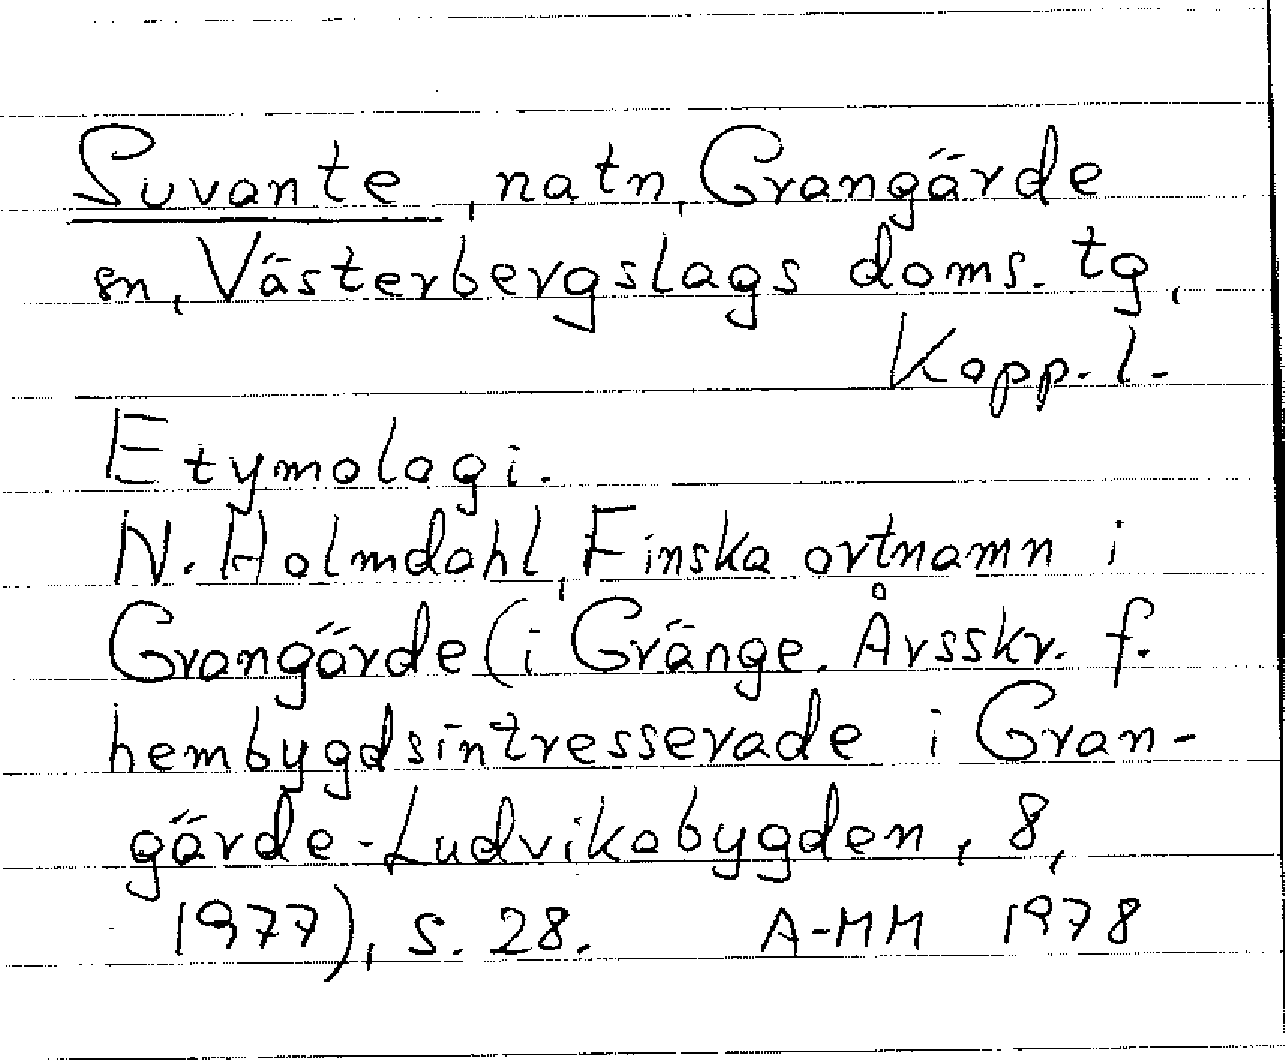 Suvante, natn, Grangärde
sn, Västerbergslags doms. tg,
Kopp. l.
Etymologi.
N. Holmdahl, Finska ortnamn i
Grangärde (i Gränge. Årsskr. f.
hembygdsintresserade i Gran-
gärde-Ludvikabygden, 8,
1977), s. 28. A-MM 1978